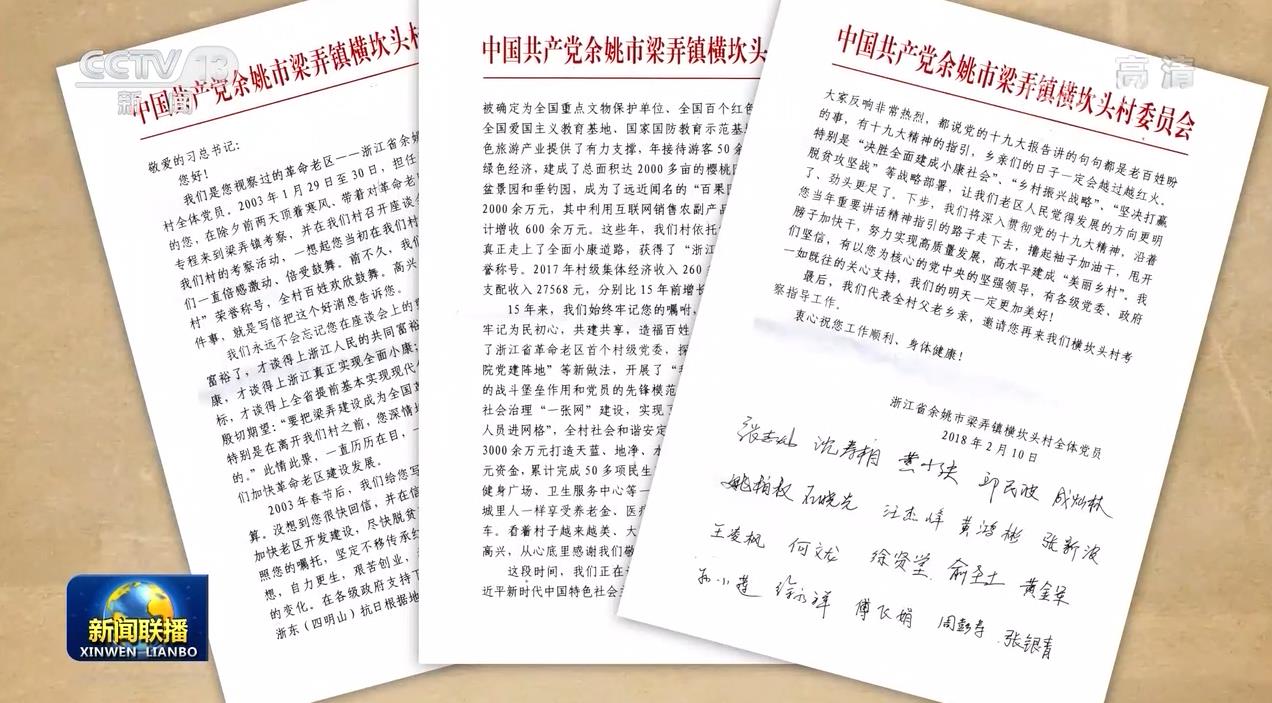 CCTV 13
新闻
高清
中国共产党余姚市梁弄镇横坎头村
敬爱的习总书记：
您好！
我们是您视察过的革命老区——浙江省余姚
村全体党员。2003年1月29日至30日，担任
的您，在除夕前两天顶着寒风、带着对革命老
专程来到梁弄镇考察，并在我们村召开座谈会
我们村的考察活动，一想起您当初在我们村
们一直倍感激动、倍受鼓舞。前不久，我们
村”荣誉称号，全村百姓欢欣鼓舞。高兴
件事，就是写信把这个好消息告诉您。
我们永远不会忘记您在座谈会上的
富裕了，才谈得上浙江人民的共同富裕
康，才谈得上浙江真正实现全面小康；
标，才谈得上全省提前基本实现现代
殷切期望：“要把梁弄建设成为全国革
特别是在离开我们村之前，您深情地
的。”此情此景，一直历历在目，一
们加快革命老区建设发展。
2003年春节后，我们给您写
算。没想到您很快回信，并在信
加快老区开发建设，尽快脱贫
照您的嘱托，坚定不移传承红
想，自力更生，艰苦创业，
的变化。在各级政府支持下
浙东（四明山）抗日根据地
中国共产党余姚市梁弄镇横坎头
被确定为全国重点文物保护单位、全国百个红色
全国爱国主义教育基地、国家国防教育示范基
色旅游产业提供了有力支撑，年接待游客50余
绿色经济，建成了总面积达2000多亩的樱桃
盆景园和垂钓园，成为了远近闻名的“百果园
2000余万元，其中利用互联网销售农副产品
计增收600余万元。这些年，我们村依托
真正走上了全面小康道路，获得了“浙江
誉称号。2017年村级集体经济收入260
支配收入27568元，分别比15年前增长
15年来，我们始终牢记您的嘱咐，
牢记为民初心，共建共享，造福百姓
了浙江省革命老区首个村级党委，探
院党建阵地”等新做法，开展了“
的战斗堡垒作用和党员的先锋模范
社会治理“一张网”建设，实现了
人员进网格”，全村社会和谐安定
3000余万元打造天蓝、地净、水
元资金，累计完成50多项民生
健身广场、卫生服务中心等一
城里人一样享受养老金、医疗
车。看着村子越来越美、大
高兴，从心底里感谢我们敬
这段时间，我们正在
近平新时代中国特色社会主
中国共产党余姚市梁弄镇横坎头村委员会
大家反响非常热烈，都说党的十九大报告讲的句句都是老百姓盼
的事，有十九大精神的指引，乡亲们的日子一定会越过越红火、
特别是“决胜全面建成小康社会”、“乡村振兴战略”、“坚决打赢
脱贫攻坚战”等战略部署，让我们老区人民觉得发展的方向更明
了、劲头更足了。下步，我们将深入贯彻党的十九大精神，沿着
您当年重要讲话精神指引的路子走下去，撸起袖子加油干，甩开
膀子加快干，努力实现高质量发展，高水平建成“美丽乡村”。我
们坚信，有以您为核心的党中央的坚强领导，有各级党委、政府
一如既往的关心支持，我们的明天一定更加美好！
最后，我们代表全村父老乡亲，邀请您再来我们横坎头村考
察指导工作。
衷心祝您工作顺利、身体健康！
浙江省余姚市梁弄镇横坎头村全体党员
2018年2月10日
张志灿 沈寿相 黄小珠 邱民波 成灿林
姚柏权 石晓光 汪杰峰 黄鸿彬 张新波
王凌枫 何文龙 徐贤堂 俞圣土 黄金华
孙小莲 徐永祥 傅飞娟 周彭寿 张银青
新闻联播
XINWEN LIANBO